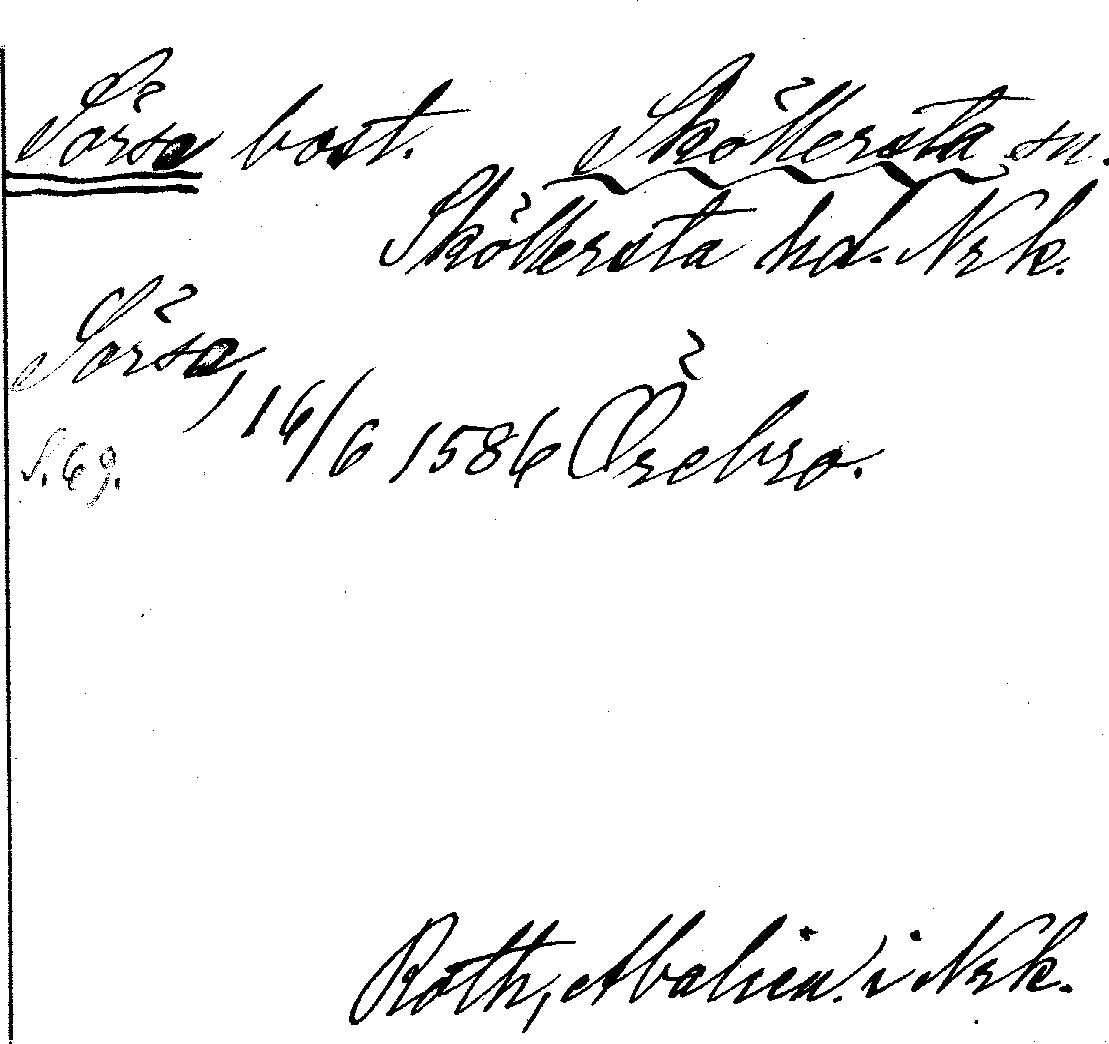 Sörsa bost. Sköllersta sn.
Sköllersta hd. Nrk.
Sörsa,
16/6 1586 Örebro.
S. 69.
Roth, Abalien. i Nrk.